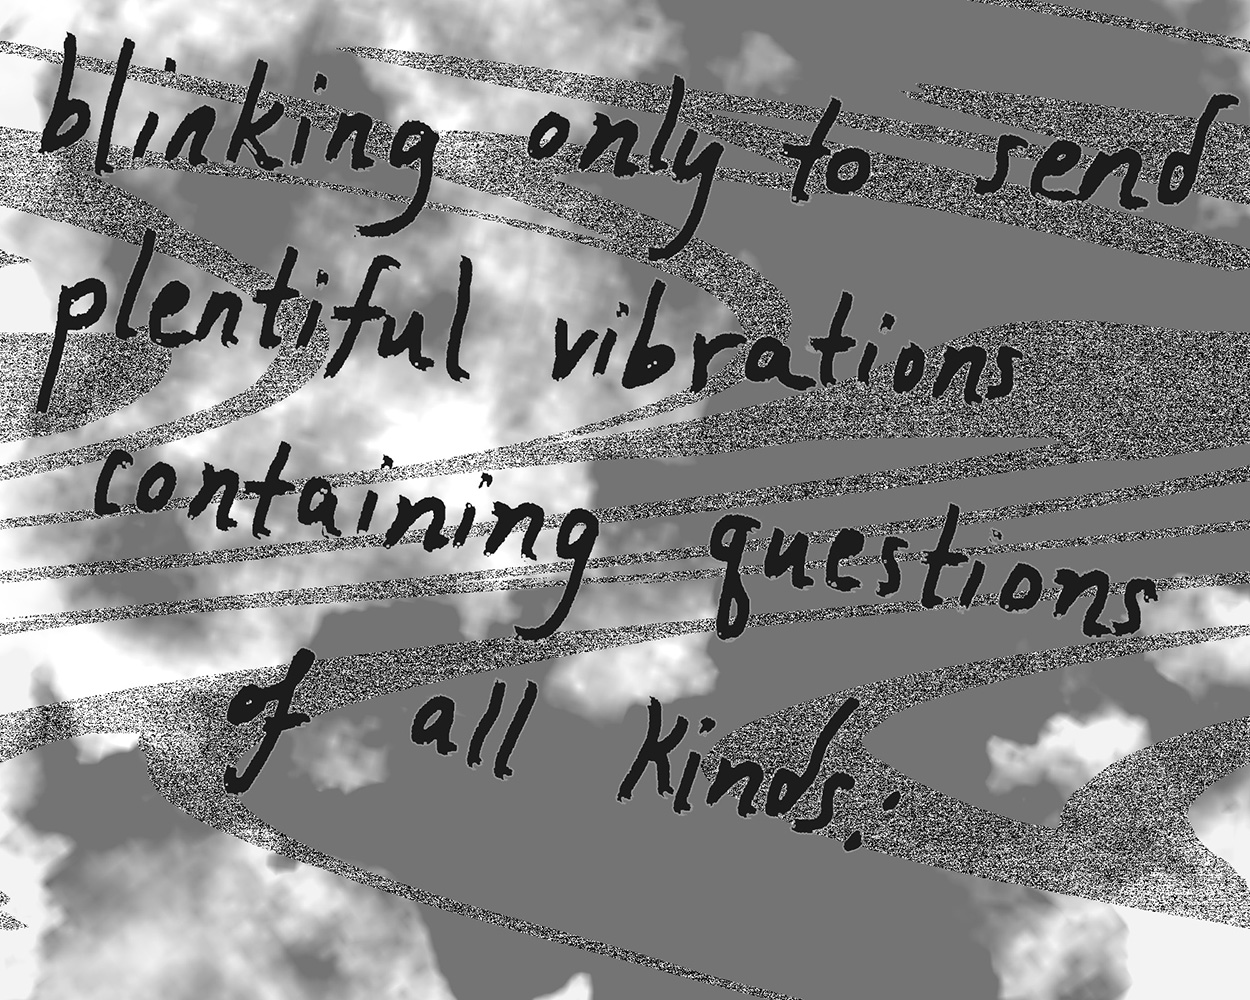 blinking only to send
plentiful vibrations
containing questions
of all kinds: